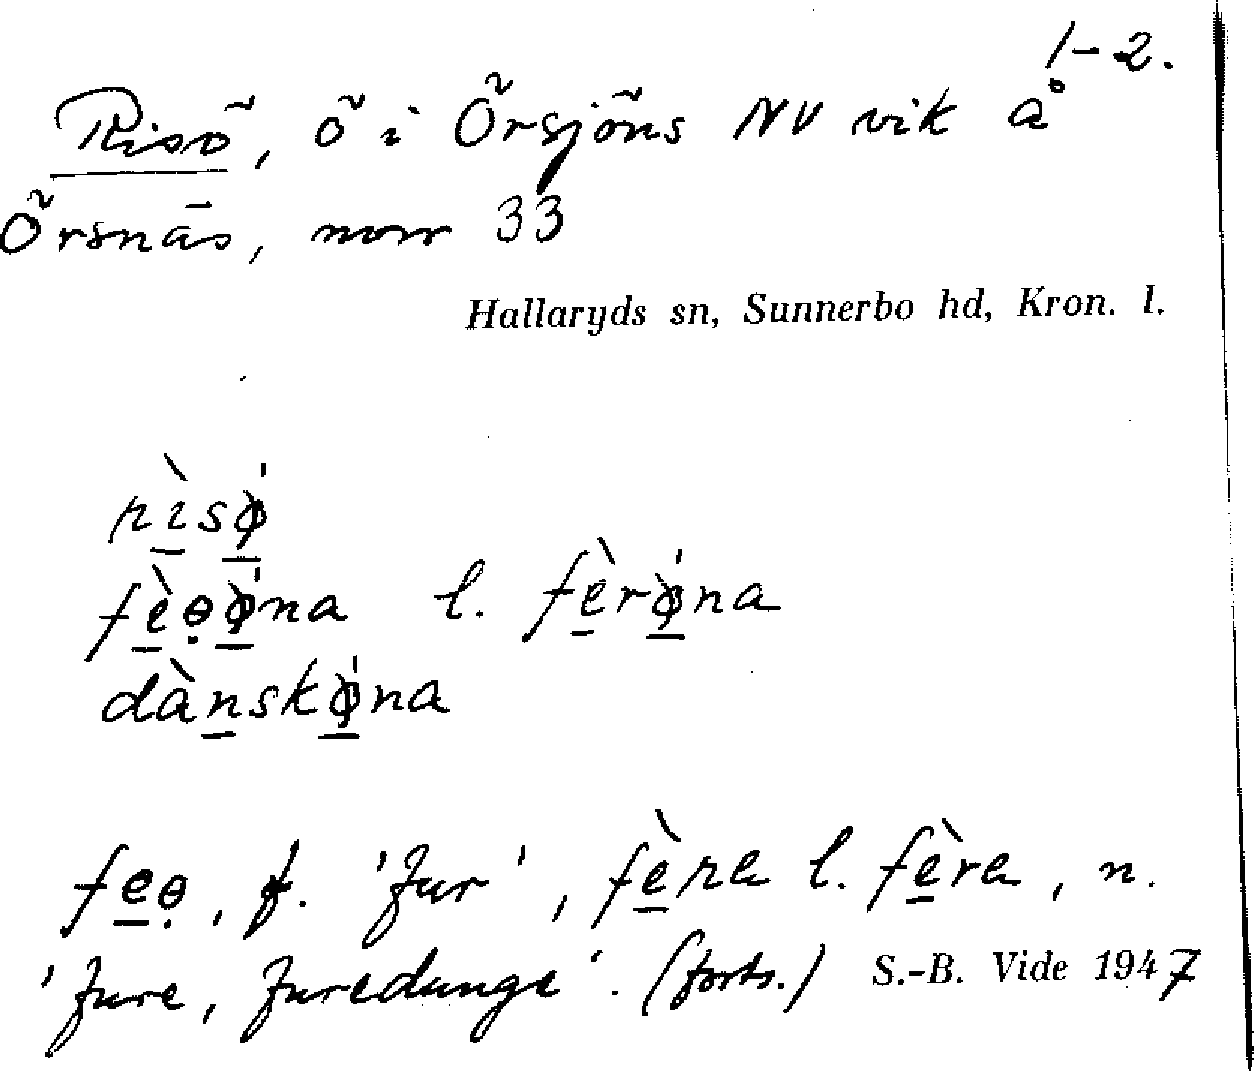 1-2.
Risö, ö i Örsjöns NV vik å
Örsnäs, norr 33
Hallaryds sn, Sunnerbo hd, Kron. l.
rìsø̀
fèəø̀na l. fèrø̀na
dànskø̀na
feə, f. 'fur', fèra l. fèra, n.
'fure, furedunge'. (forts.) S.-B. Vide 1947